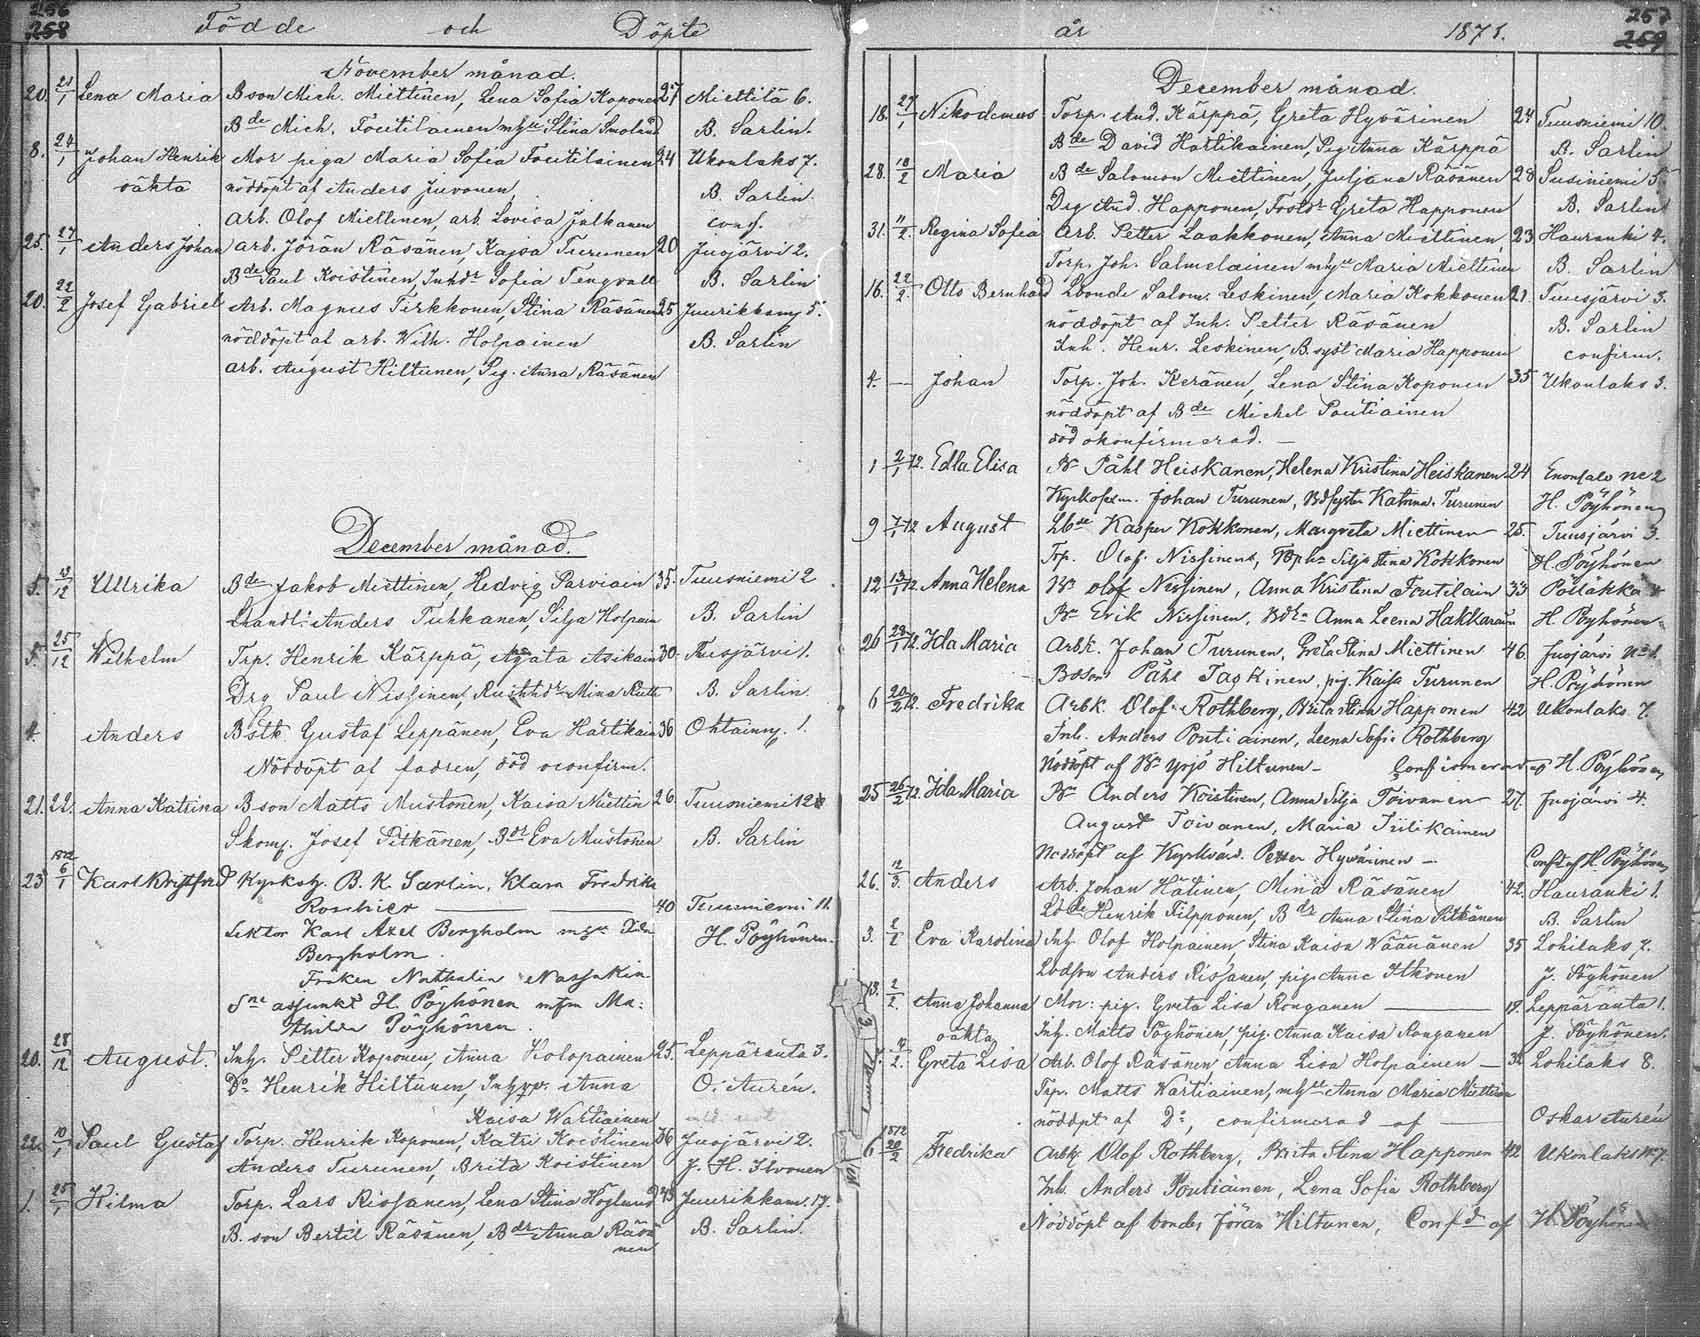 256
258
Födde och Döpte
November månad.
20. 21/1 Lena Maria Bson Mich. Miettinen, Lena Sofia Koponen 27 Miettilä 6.
Bde Mich. Toutilainen m hu Stina Smoland B. Sarlin.
8. 24/1 Johan Henrik Mor piga Maria Sofia Toutilainen 24 Ukonlaks 7.
oäkta nöddöpt af Anders Juvonen B. Sarlin
Arb. Olof Miettinen, arb. Lovisa Julkunen conf.
25. 27/1 Anders Johan Arb. Jöran Räsänen, Kajsa Turunen 20 Juojärvi 2.
Bde Paul Koistinen, Inhdr Sofia Tengvall B. Sarlin
20. 22/2 Josef Gabriel Arb. Magnus Tirkkonen, Stina Räsänen 25 Juurikkamy 5.
nöddöpt af arb. Wilh. Holpainen B. Sarlin
arb. August Hiltunen, Pig. Anna Räsänen
December månad.
5. 23/12 Ullrika Bde Jakob Miettinen, Hedvig Parviain 35. Tuusniemi 2
Handl. Anders Tuhkanen, Silja Holpain B. Sarlin
5. 25/12 Wilhelm Trp. Henrik Kärppä, Agata Asikain 30. Tuusjärvi 1.
Drg Paul Nissinen, Mina Rutt B. Sarlin.
4. Anders Bstb Gustaf Leppänen, Eva Hartikain 36 Ohtaanny. 1.
Nöddöpt af fadren, död oconfirm.
21. 22. Anna Katrina Bson Matts Mustonen, Kaisa Miettin 26 Tuusniemi 12
Skomj. Josef Pitkänen, Bdr Eva Mustonen B. Sarlin
23 1872 6/1 Karl Kristfrid Kyrkohj. B. K. Sarlin, Klara Fredrika
Roschier 40 Tuusniemi 11.
Lektor Karl Axel Borgholm H. Pöyhönen.
Bergholm.
Fröken Nathalia
adjunkt H. Pöyhönen m fru Ma-
thilda Pöyhönen.
20. 28/12 August. Inh. Petter Koponen, Anna Holopainen 25. Leppäranta 3.
Do Henrik Hiltunen, Anna O. Aurén.
Kaisa Wartiainen
22. 10/1 Paul Gustaf Torp. Henrik Koponen, Katri Koistinen 36 Juojärvi 2.
Anders Turunen, Brita Koistinen J. H. Ilvonen
1. 25/1 Hilma Torp. Lars Rissanen, Lena Stina Höglund 43 Juurikkam. 17.
B. son Bertil Räsänen, Bdr Anna Räsä- B. Sarlin.
nen
257
259
år 1871.
December månad.
18. 27/1 Nikodemus Torp. And. Kärppä, Greta Hyvärinen 24 Tuusniemi 10.
Bde David Hartikainen, Pig Anna Kärppä B. Sarlin
28. 18/2 Maria Bde Salomon Miettinen, Juljana Räsänen 28 Susiniemi 5.
Drg And. Happonen, Greta Happonen B. Sarlin
31. 11/2. Regina Sofia Arb. Petter Laakkonen, Anna Miettinen, 23 Hauranki 4.
Torp. Joh. Salmelainen m hu Maria Miettinen B. Sarlin
16. 22/2 Otto Bernhard Lbonde Salom. Leskinen, Maria Kokkonen 21. Tuusjärvi 3.
nöddöpt af Inh. Petter Räsänen B. Sarlin
Inh. Henr. Leskinen, B. syst Maria Happonen confirm.
4. — Johan Torp. Joh. Keränen, Lena Stina Koponen 35 Ukonlaks 3.
nöddöpt af Bde Michel Poutiainen
död okonfirmerad. —
1 2/1 72. Edla Elisa Bn Påhl Heiskanen, Helena Kristina Heiskanen 24 Enonsalo No 2
Johan Turunen, Katrina Turunen H. Pöyhönen
9 7/1 72 August Lbde Kasper Kokkonen, Margreta Miettinen 25. Tuusjärvi 3.
Trp. Olof Nissinen, Silja Stina Kokkonen H. Pöyhönen
12 13/1 72. Anna Helena Bn Olof Nissinen, Anna Kristina Toutilain 33 Pölläkkä
Bn Erik Nissinen, Anna Leena Hakkarain H. Pöyhönen
26 29/1 72. Ida Maria Arbk. Johan Turunen, Greta Stina Miettinen 46. Juojärvi No 1.
Bson Påhl Taskinen, pig. Kajsa Turunen H. Pöyhönen
6 20/2 72. Fredrika Arbk. Olof Rothberg, Brita Stina Happonen 42 Ukonlaks 7.
Inh. Anders Poutiainen, Leena Sofia Rothberg
Nöddöpt af Bn Yrjö Hiltunen — Confirmerad af H. Pöyhönen
25 26/2 72. Ida Maria Bn Anders Koistinen, Anna Silja Toivanen 27. Juojärvi 4.
August Toivanen, Maria Tiilikainen
Nöddöpt af Kyrkvärd. Petter Hyvärinen — Conf. af H. Pöyhönen
26. 12/3 Anders Arb. Johan Hätinen, Mina Räsänen 42. Hauranki 1.
Lbde Henrik Filpponen, Bdr Anna Stina Pitkänen B. Sarlin
3. 2/2 Eva Karolina Inh. Olof Holpainen, Stina Kaisa Väänänen 35 Lohilaks 7.
Lbdson Anders Rissanen, pig. Anna Itkonen J. Pöyhönen
13. 2/2 Anna Johanna Mor: pig. Greta Lisa Ronganen — 19. Leppäranta 1.
oäkta Inh. Matts Pöyhönen, pig. Anna Kaisa Ronganen J. Pöyhönen.
4/2. Greta Lisa Arb. Olof Räsänen, Anna Lisa Holpainen — 32 Lohilaks 8.
Trp. Matts Wartiainen, m hu Anna Maria Miettinen
nöddöpt af Do, confirmerad — af — Oskar Aurén
6 1872 20/2 Fredrika Arbk Olof Rothberg, Brita Stina Happonen 42 Ukonlaks No 7.
Inh. Anders Poutiainen, Lena Sofia Rothberg
Nöddöpt af bonden Jöran Hiltunen, Confd af H. Pöyhönen